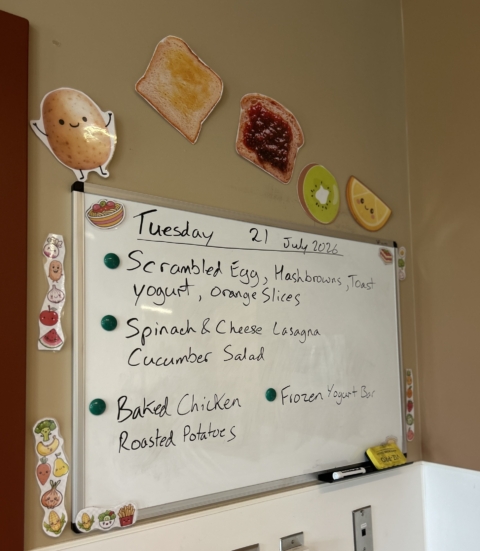 Tuesday 21 July 2026
Scrambled Egg, Hashbrowns, Toast
yogurt, Orange Slices
Spinach & Cheese Lasagna
Cucumber Salad
Baked Chicken
Roasted Potatoes
Frozen Yogurt Bar